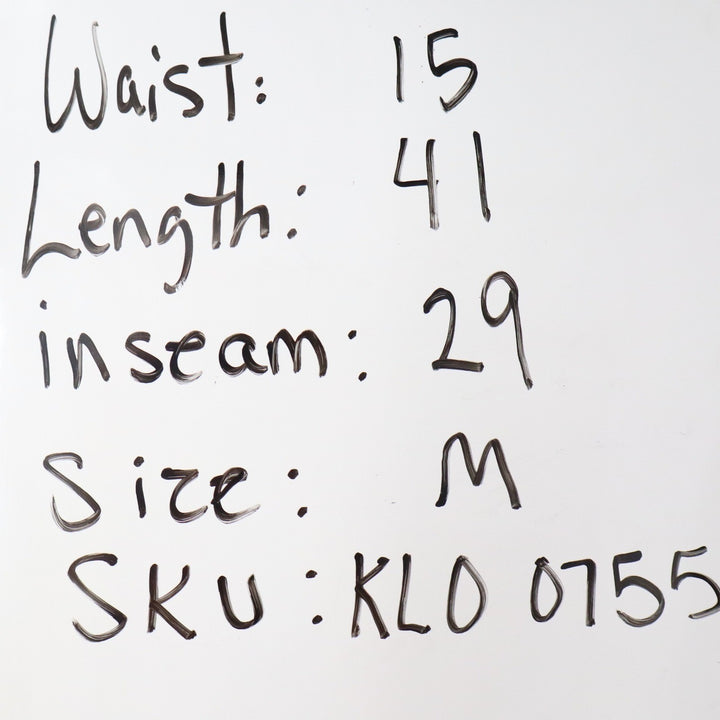 Waist: 15
Length: 41
inseam: 29
Size: M
SKU: KLO 0755